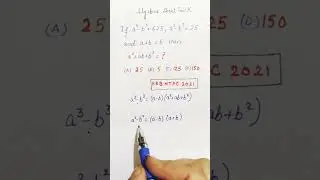 Algebra Short Trick
If a³-b³=625, a²-b²=25
and a+b=5 then
a²+ab+b²=?
(A) 25 (B) 5 (C) 125 (D) 150
RRB NTPC 2021
a³-b³=(a-b)(a²+ab+b²)
a²-b²=(a-b)(a+b)
a³-b³
ab+b²)